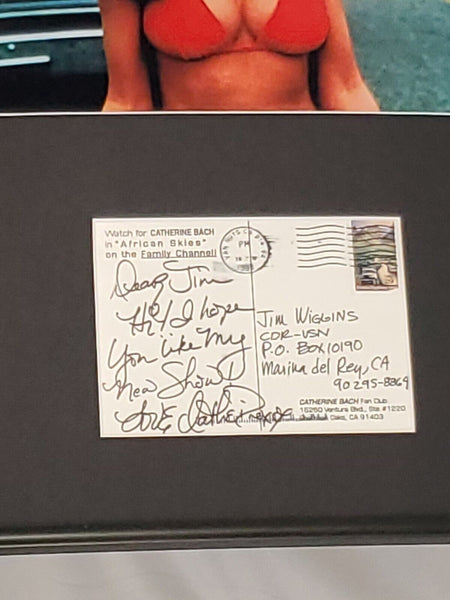 Watch for CATHERINE BACH
in "African Skies"
on the Family Channel!
PM
Dear Jim
Hi! I hope
You like My
New Show!
Love Catherine Bach
JIM WIGGINS
CDR-USN
P.O. BOX 10190
Marina del Rey, CA
90295-8864
CATHERINE BACH Fan Club
15250 Ventura Blvd., Ste #1220
Oaks, CA 91403